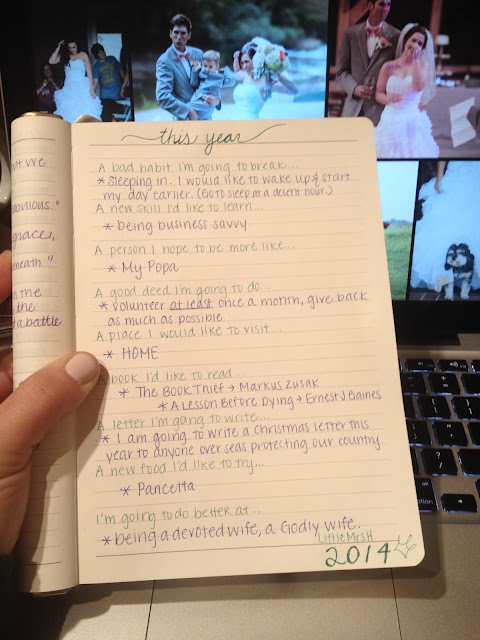 this year
A bad habit i'm going to break...
* Sleeping in. I would like to wake up & start
my day earlier. (Go to sleep at a decent hour.)
A new skill I'd like to learn...
* being business savvy.
A person I hope to be more like...
* My Popa
A good deed I'm going to do...
* Volunteer at least once a month, give back
as much as possible.
A place I would like to visit...
* HOME
A book I'd like to read...
* The Book Thief → Markus Zusak
* A Lesson Before Dying → Ernest J Gaines
A letter I'm going to write...
* I am going to write a Christmas letter this
year to anyone over seas protecting our country.
A new food I'd like to try...
* Pancetta
I'm going to do better at...
* being a devoted wife, a Godly wife.
Little Mrs H
2014
we
grace,
me
the
a battle